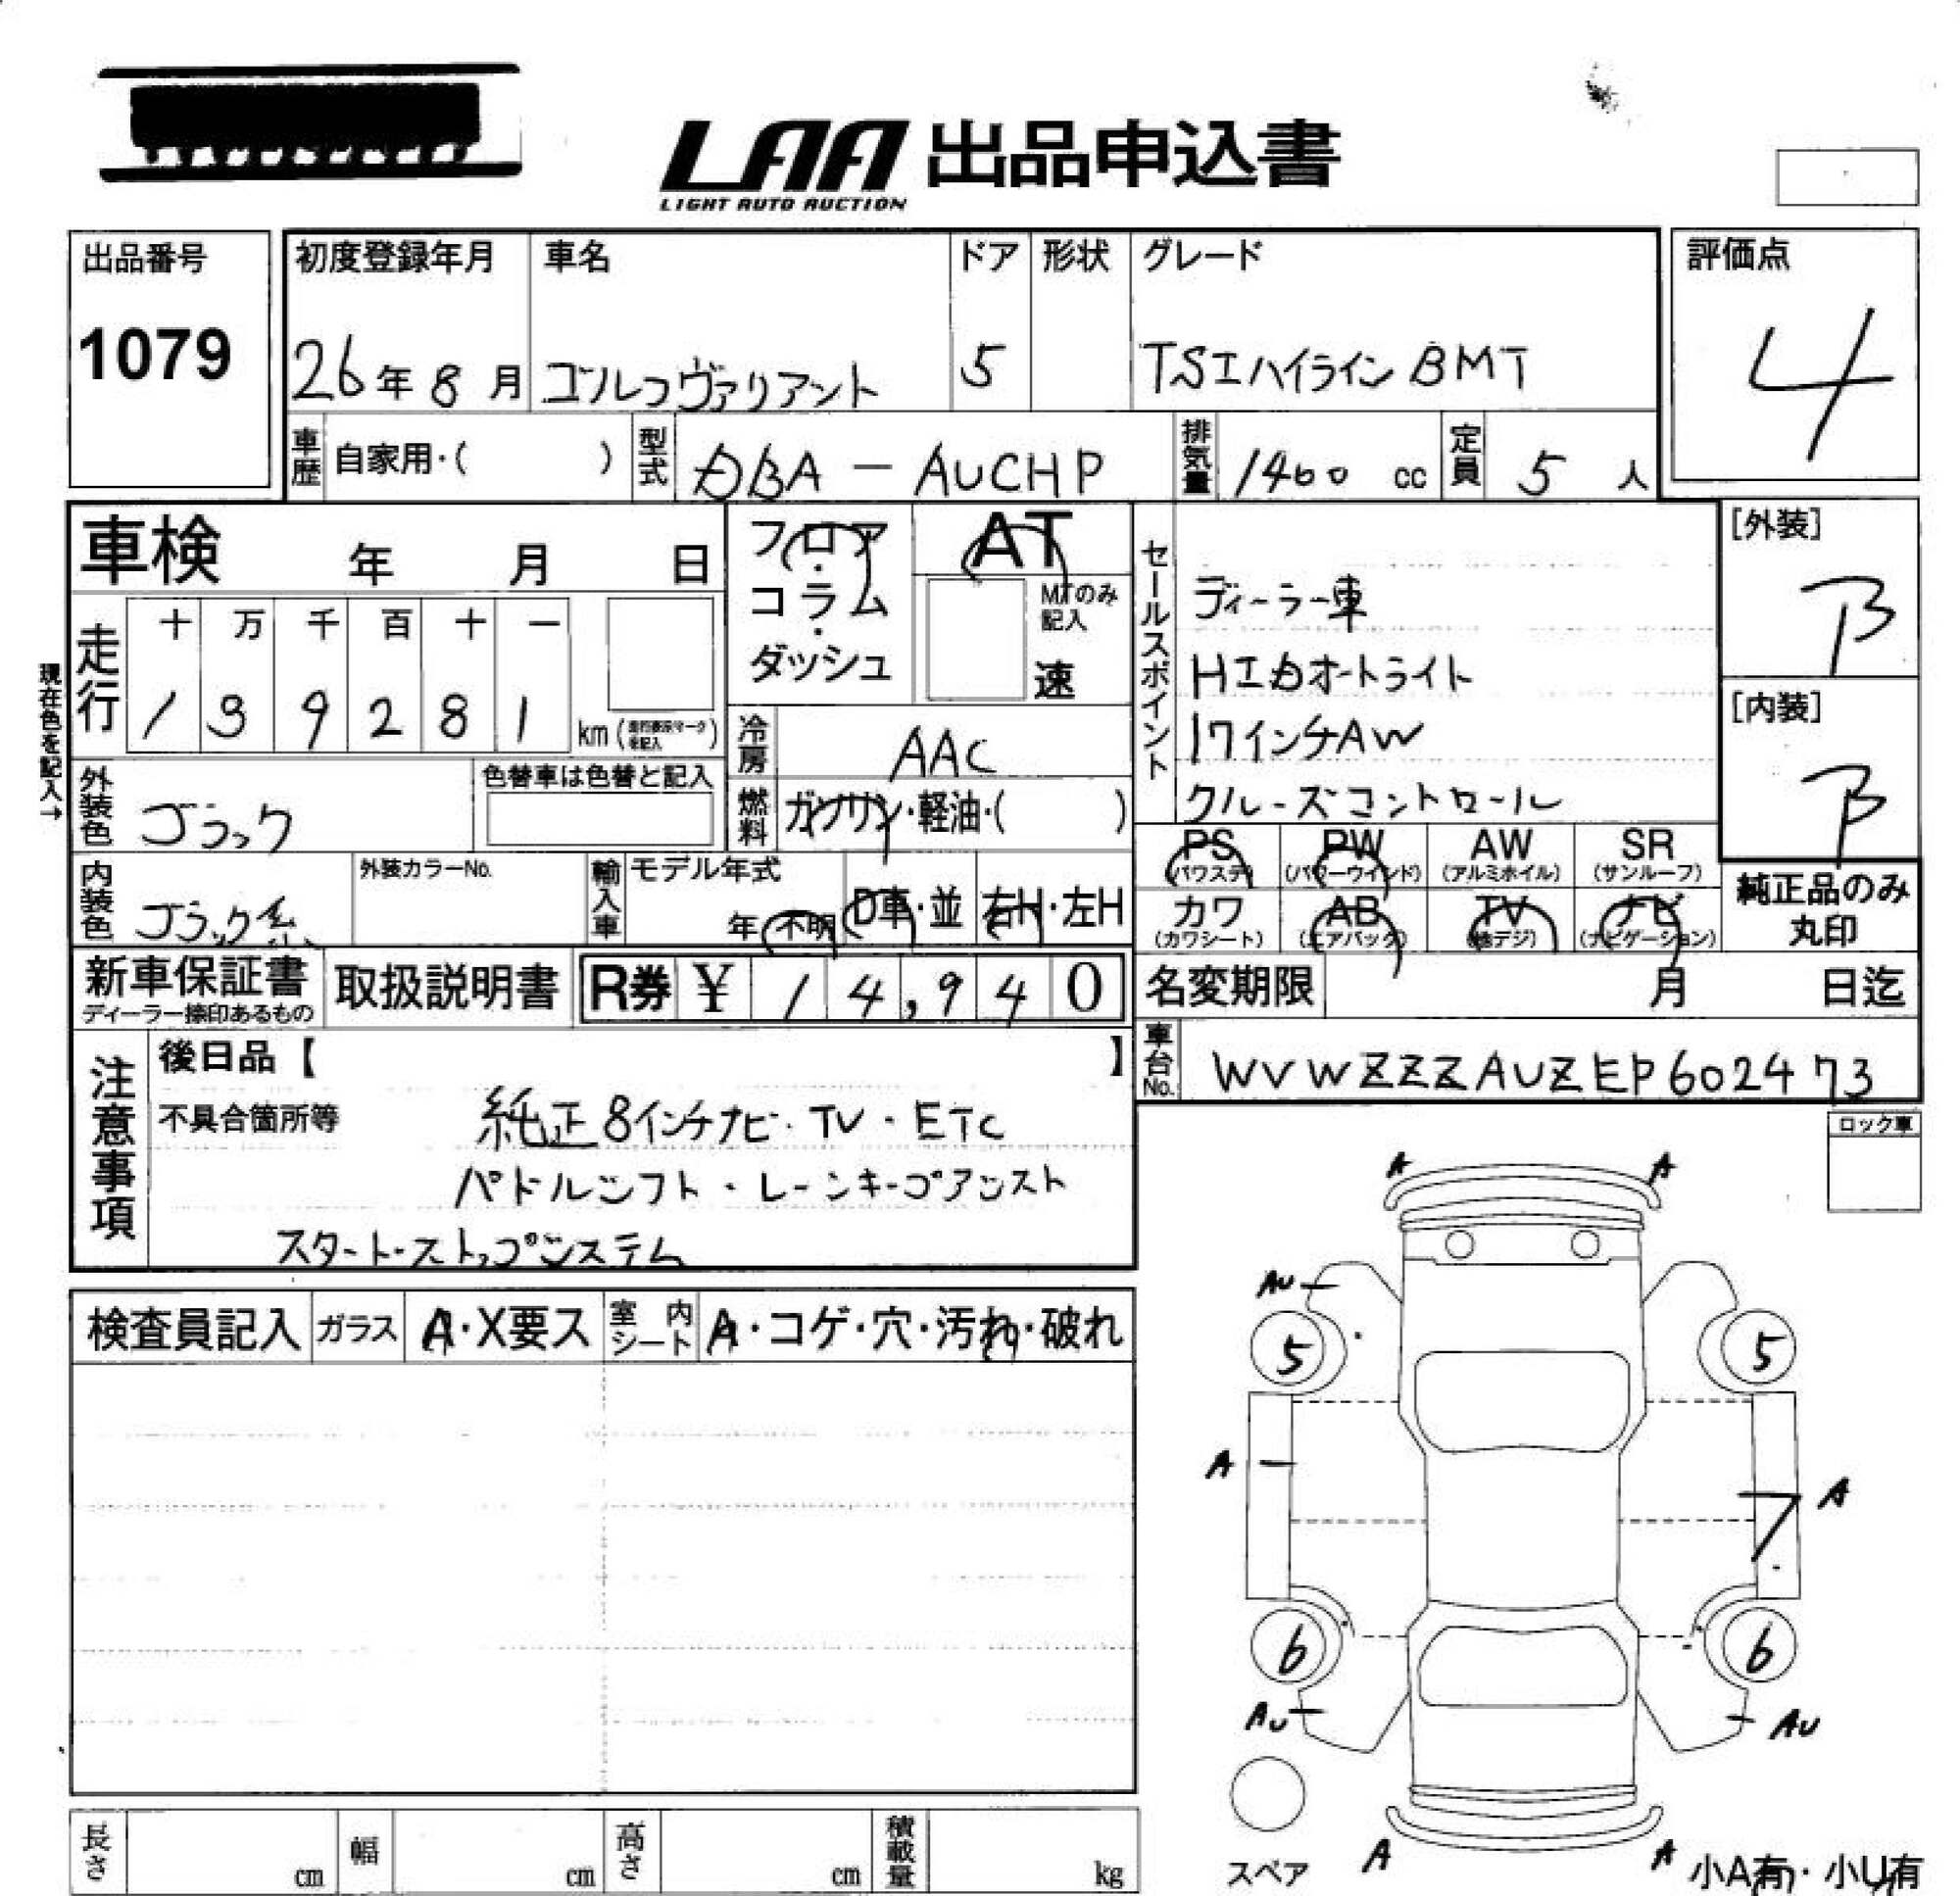 LAA 出品申込書
LIGHT AUTO AUCTION
出品番号
1079
初度登録年月
26年8月
車名
ゴルフヴァリアント
ドア
5
形状
グレード
TSIハイラインBMT
評価点
4
車歴 自家用・( )
型式 DBA-AUCHP
排気量 1400 cc
定員 5 人
車検 年 月 日
フロア・コラム・ダッシュ
AT
MTのみ記入
速
セールスポイント
ディーラー車
HIDオートライト
17インチAW
クルーズコントロール
[外装]
B
[内装]
B
現在色を記入→
走行
十 万 千 百 十 一
1 3 9 2 8 1 km
冷房 AAC
燃料 ガソリン・軽油・( )
外装色 ブラック
色替車は色替と記入
内装色 ブラック系
外装カラーNo.
輸入車 モデル年式
年 不明 D車・並 右H・左H
PS (パワステ)
PW (パワーウインド)
AW (アルミホイル)
SR (サンルーフ)
カワ (カワシート)
AB (エアバック)
TV (地デジ)
ナビ (ナビゲーション)
純正品のみ丸印
新車保証書
ディーラー捺印あるもの
取扱説明書
R券 ¥ 14,940
名変期限 月 日迄
車台No. WVWZZZAUZEP602473
注意事項
後日品【 】
不具合箇所等
純正8インチナビ・TV・ETC
パドルシフト・レーンキープアシスト
スタート・ストップシステム
ロック車
検査員記入 ガラス A・X要ス 室内シート A・コゲ・穴・汚れ・破れ
A A
AU
5 5
A
A
6 6
AU AU
スペア
A A
小A有・小U有
長さ cm 幅 cm 高さ cm 積載量 kg